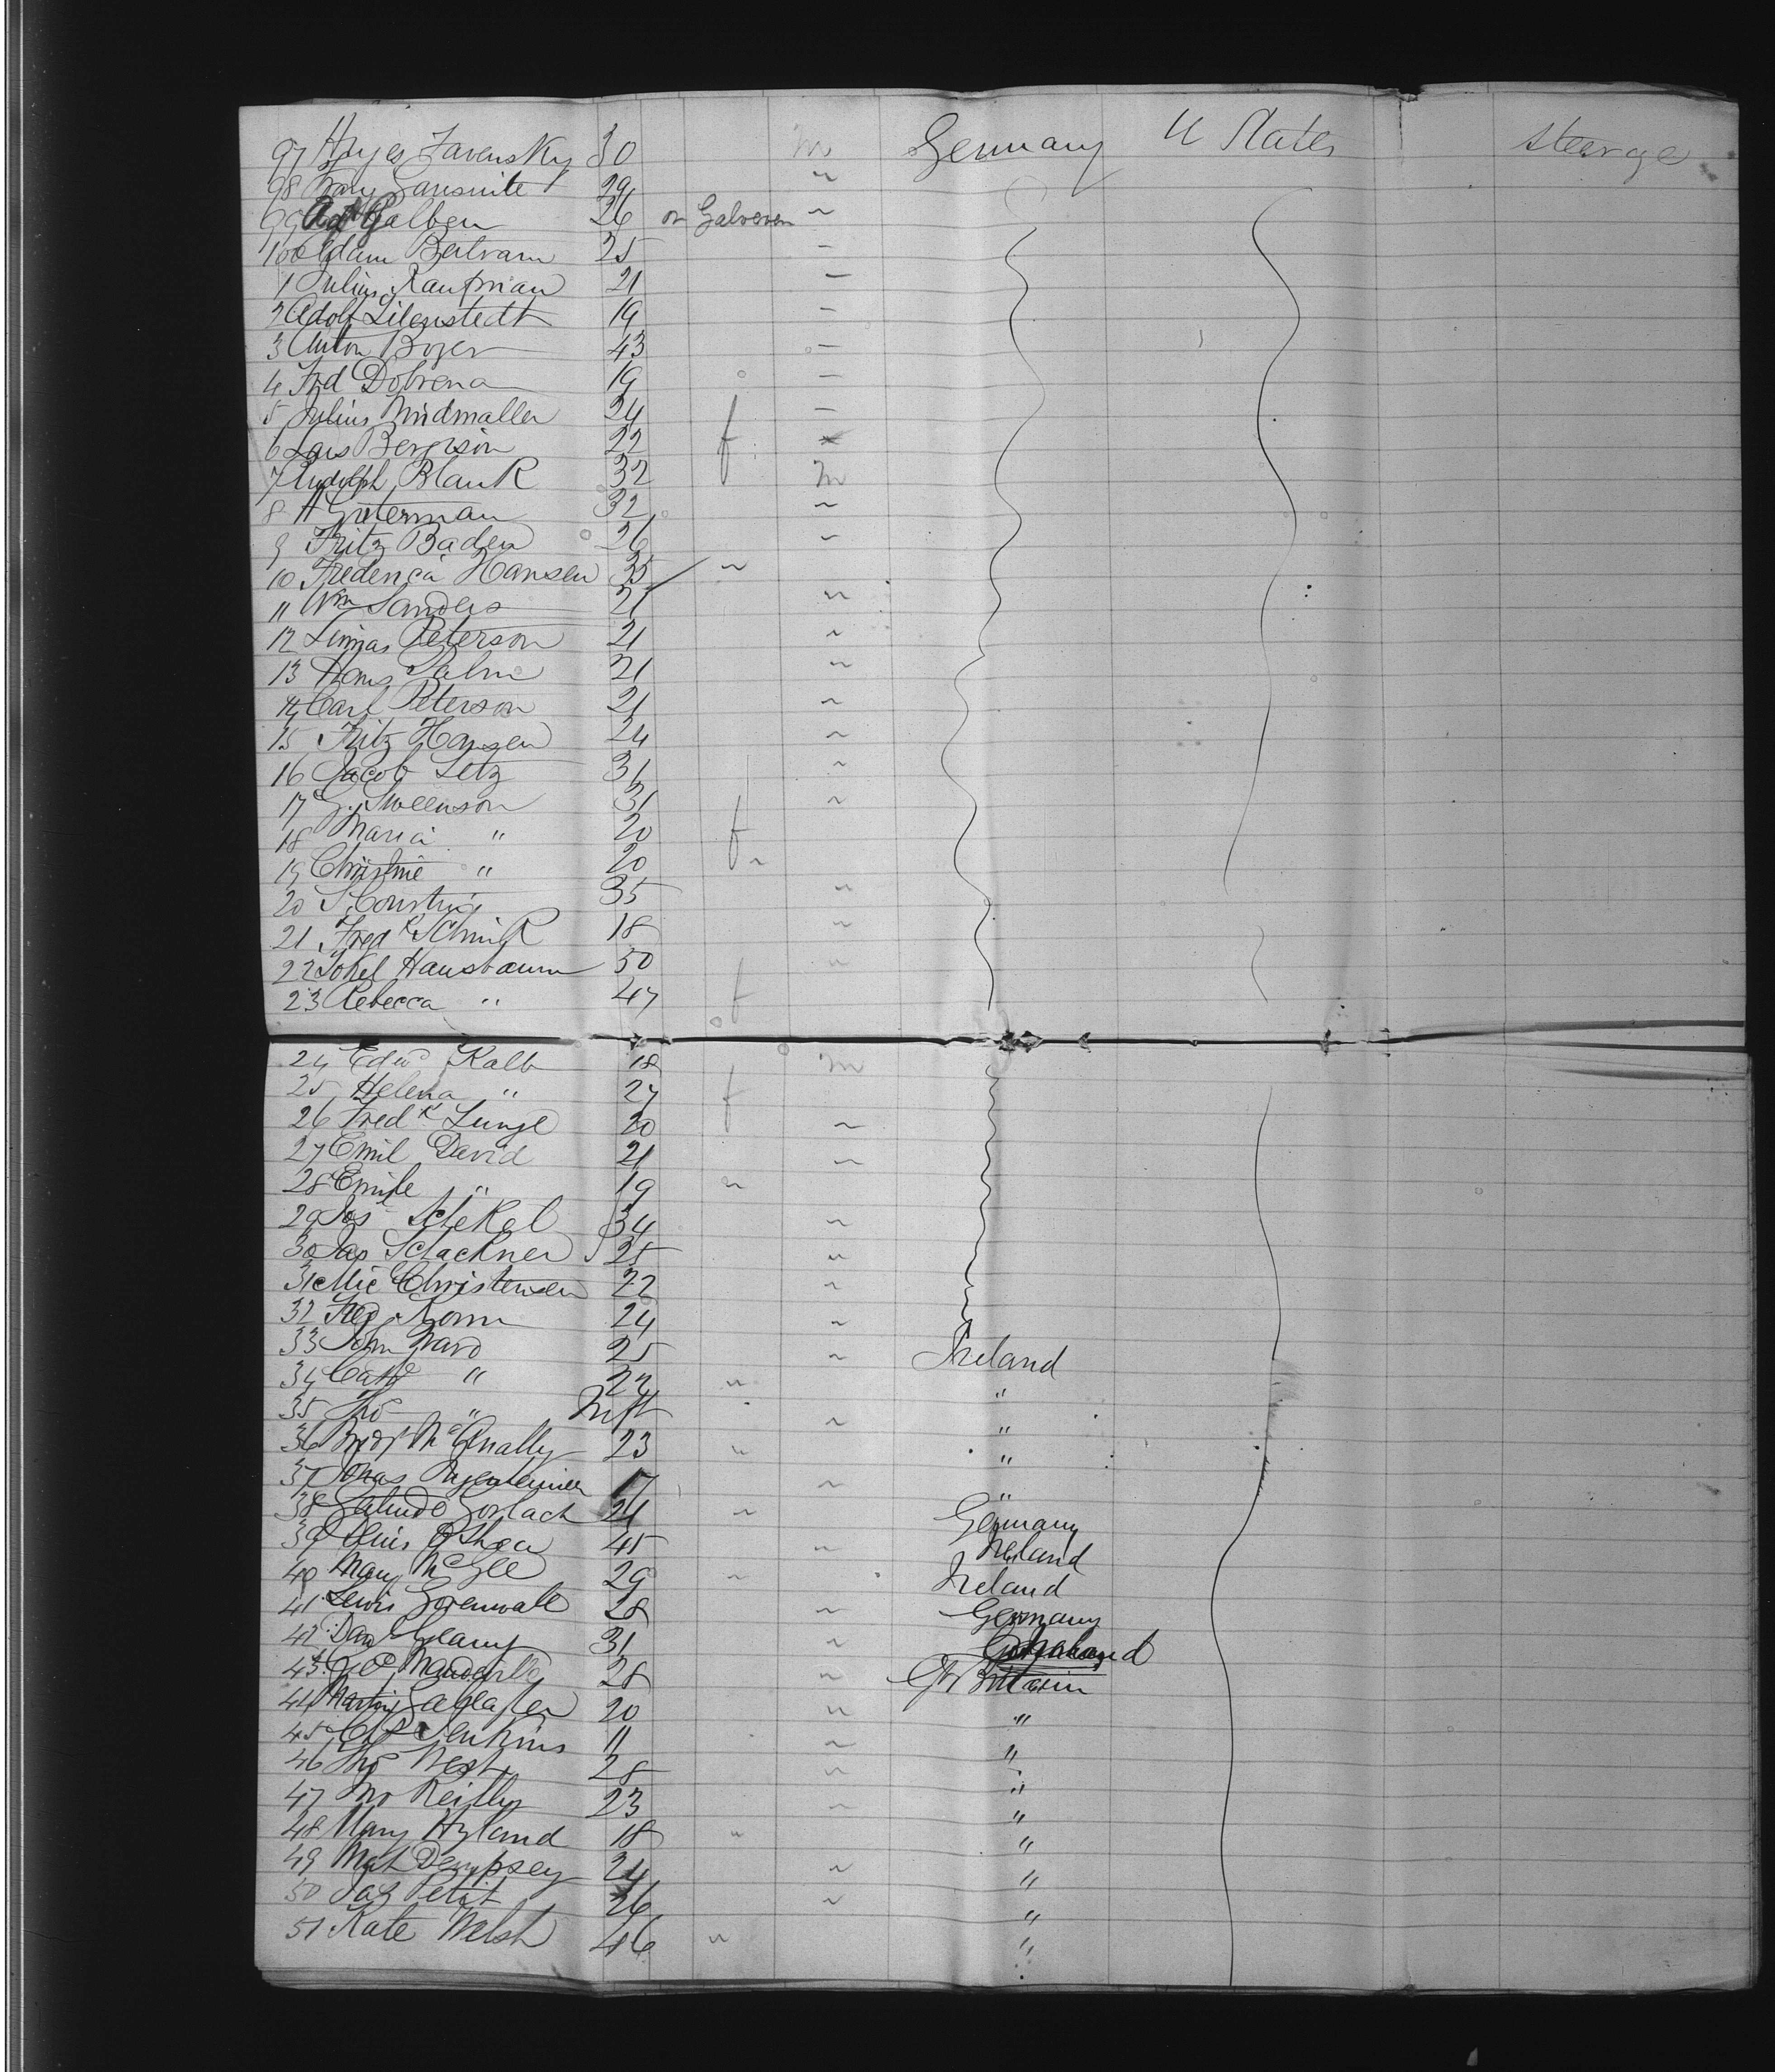 97 Zavensky 30 m Germany U States steerage
98 29 "
99 Galben 26 or Galveren "
100 Adam Bertram 25 -
1 Julius Kaufman 21 -
2 Adolf Lilenstedt 19 -
3 Anton Boyer 43 -
4 Frd Dobrena 19 -
5 Julius Windmaller 24 -
6 Lars Bengtson 22 f
7 Rudolph Blank 32 m
8 H Guterman 32 "
9 Fritz Baden 26 "
10 Frederica Hansen 35 "
11 Wm Sanders 21 "
12 Linnas Peterson 21 "
13 Hans Palm 21 "
14 Carl Peterson 21 "
15 Fritz Hansen 24 "
16 Jacob Letz 31 "
17 G. Sweenson 31 "
18 Maria " 20 f
19 Christine " 20 "
20 35 "
21 Fredk Schmik 18 "
22 Hausbaum 50 "
23 Rebecca " 47 f
24 Edwd Kalb 18 m
25 Helena " 27 f
26 Fredk Lunge 20 "
27 Emil David 21 "
28 Emile " 19 "
29 Jos Schekel 34 "
30 Jas Schackner 25 "
31 Mic Christensen 22 "
32 Fred Korn 24 "
33 John Ward 25 " Ireland
34 Cathe " 22 " "
35 Tho " Inft " "
36 Bridgt McAnally 23 " "
37 Jonas 17 " "
38 Gertrude Gorlach 24 " Germany
39 Denis O'Shea 45 " Ireland
40 Mary McGee 29 " Ireland
41 Lewis Gorenwall 28 " Germany
42 Danl Geary 31 "
43 Geo Mandeville 28 " Gt Brittain
44 Martin Gallagher 20 " "
45 Jenkins 11 " "
46 Tho West 28 " "
47 Reilly 23 " "
48 Mary Hyland 18 " "
49 Mat Dempsey 24 " "
50 Jas Petit 26 " "
51 Kate Welsh 46 " "